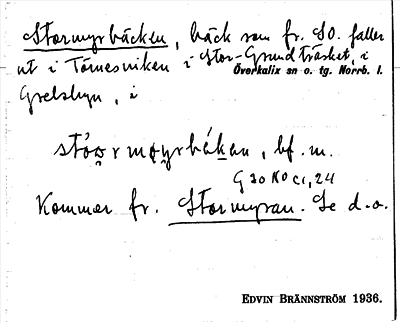 Stormyrbäcken, bäck som fr. SO. faller
ut i Törnesviken i Stor-Grundträsket, i
Överkalix sn o. tg. Norrb. l.
Grelsbyn, i
bf. m.
Kommer fr. Stormyran. Se d.o.
EDVIN BRÄNNSTRÖM 1936.